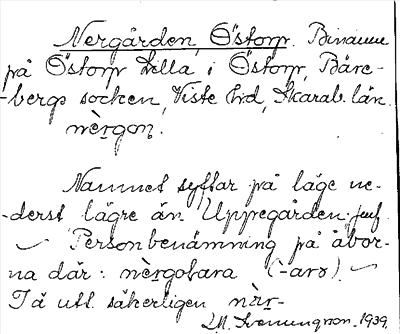 Nergården, Östorp. Binamn
på Östorp Lilla i Östorp, Båre-
-bergs socken, Viste hd, Skarab. län.
nèrgon.
Namnet syftar på läge ne-
-derst lägre än Uppegården. jmf
Personbenämning på åbor-
na där: nèrgobara (-arə)
Tä utt. säkerligen nèr-
Svenungson. 1939.